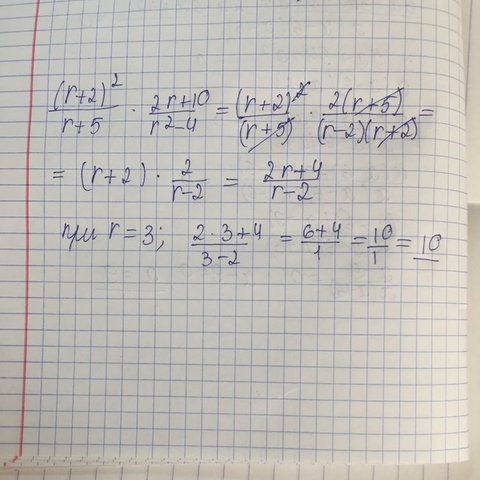 (r+2)²/r+5 · 2r+10/r²-4 = (r+2)²/(r+5) · 2(r+5)/(r-2)(r+2) =
= (r+2) · 2/r-2 = 2r+4/r-2
при r=3; 2·3+4/3-2 = 6+4/1 = 10/1 = 10